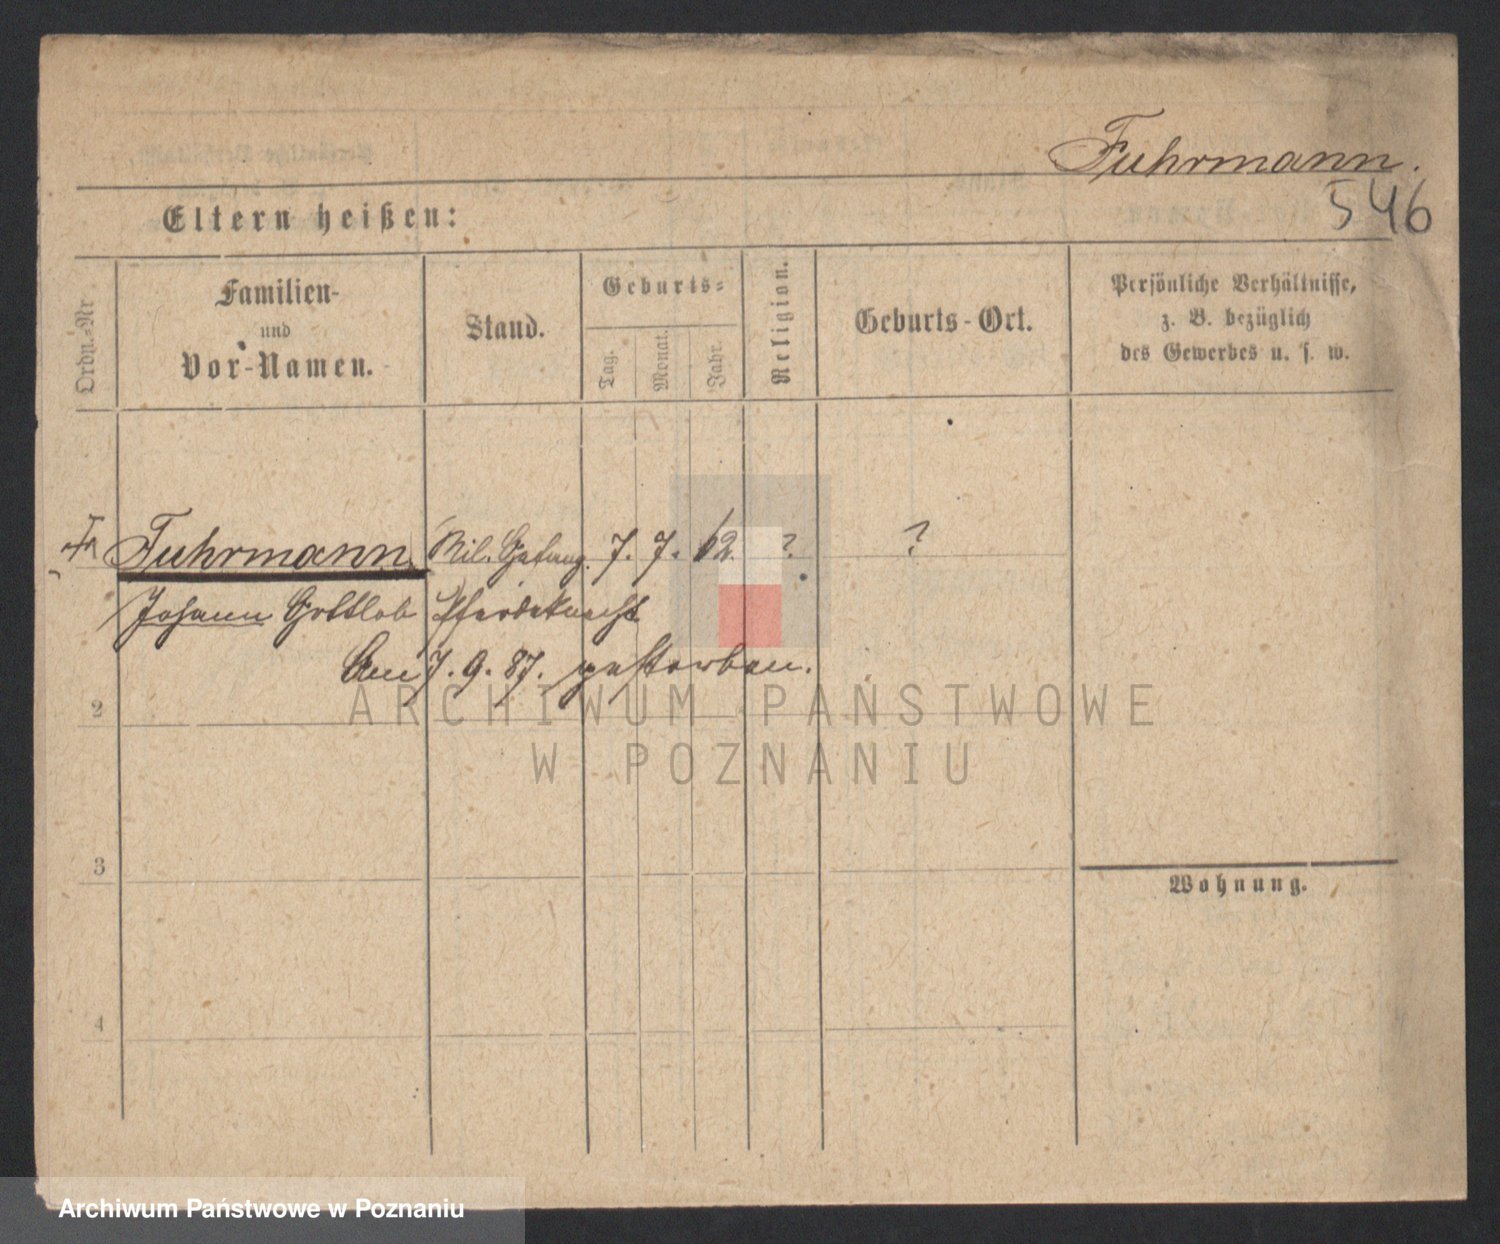 Fuhrmann.
546
Eltern heißen:
Ordn.-Nr
Familien-
und
Vor-Namen.
Stand.
Geburts-
Tag.
Monat.
Jahr.
Religion.
Geburts-Ort.
Persönliche Verhältnisse,
z. B. bezüglich
des Gewerbes u. s. w.
Fuhrmann. Mil. Gefang. 7. 7. 62. ? ?
Johann Gottlob Pferdeknecht
Am 7. 9. 87. gestorben.
2
3
4
Wohnung.
ARCHIWUM PAŃSTWOWE
W POZNANIU
Archiwum Państwowe w Poznaniu